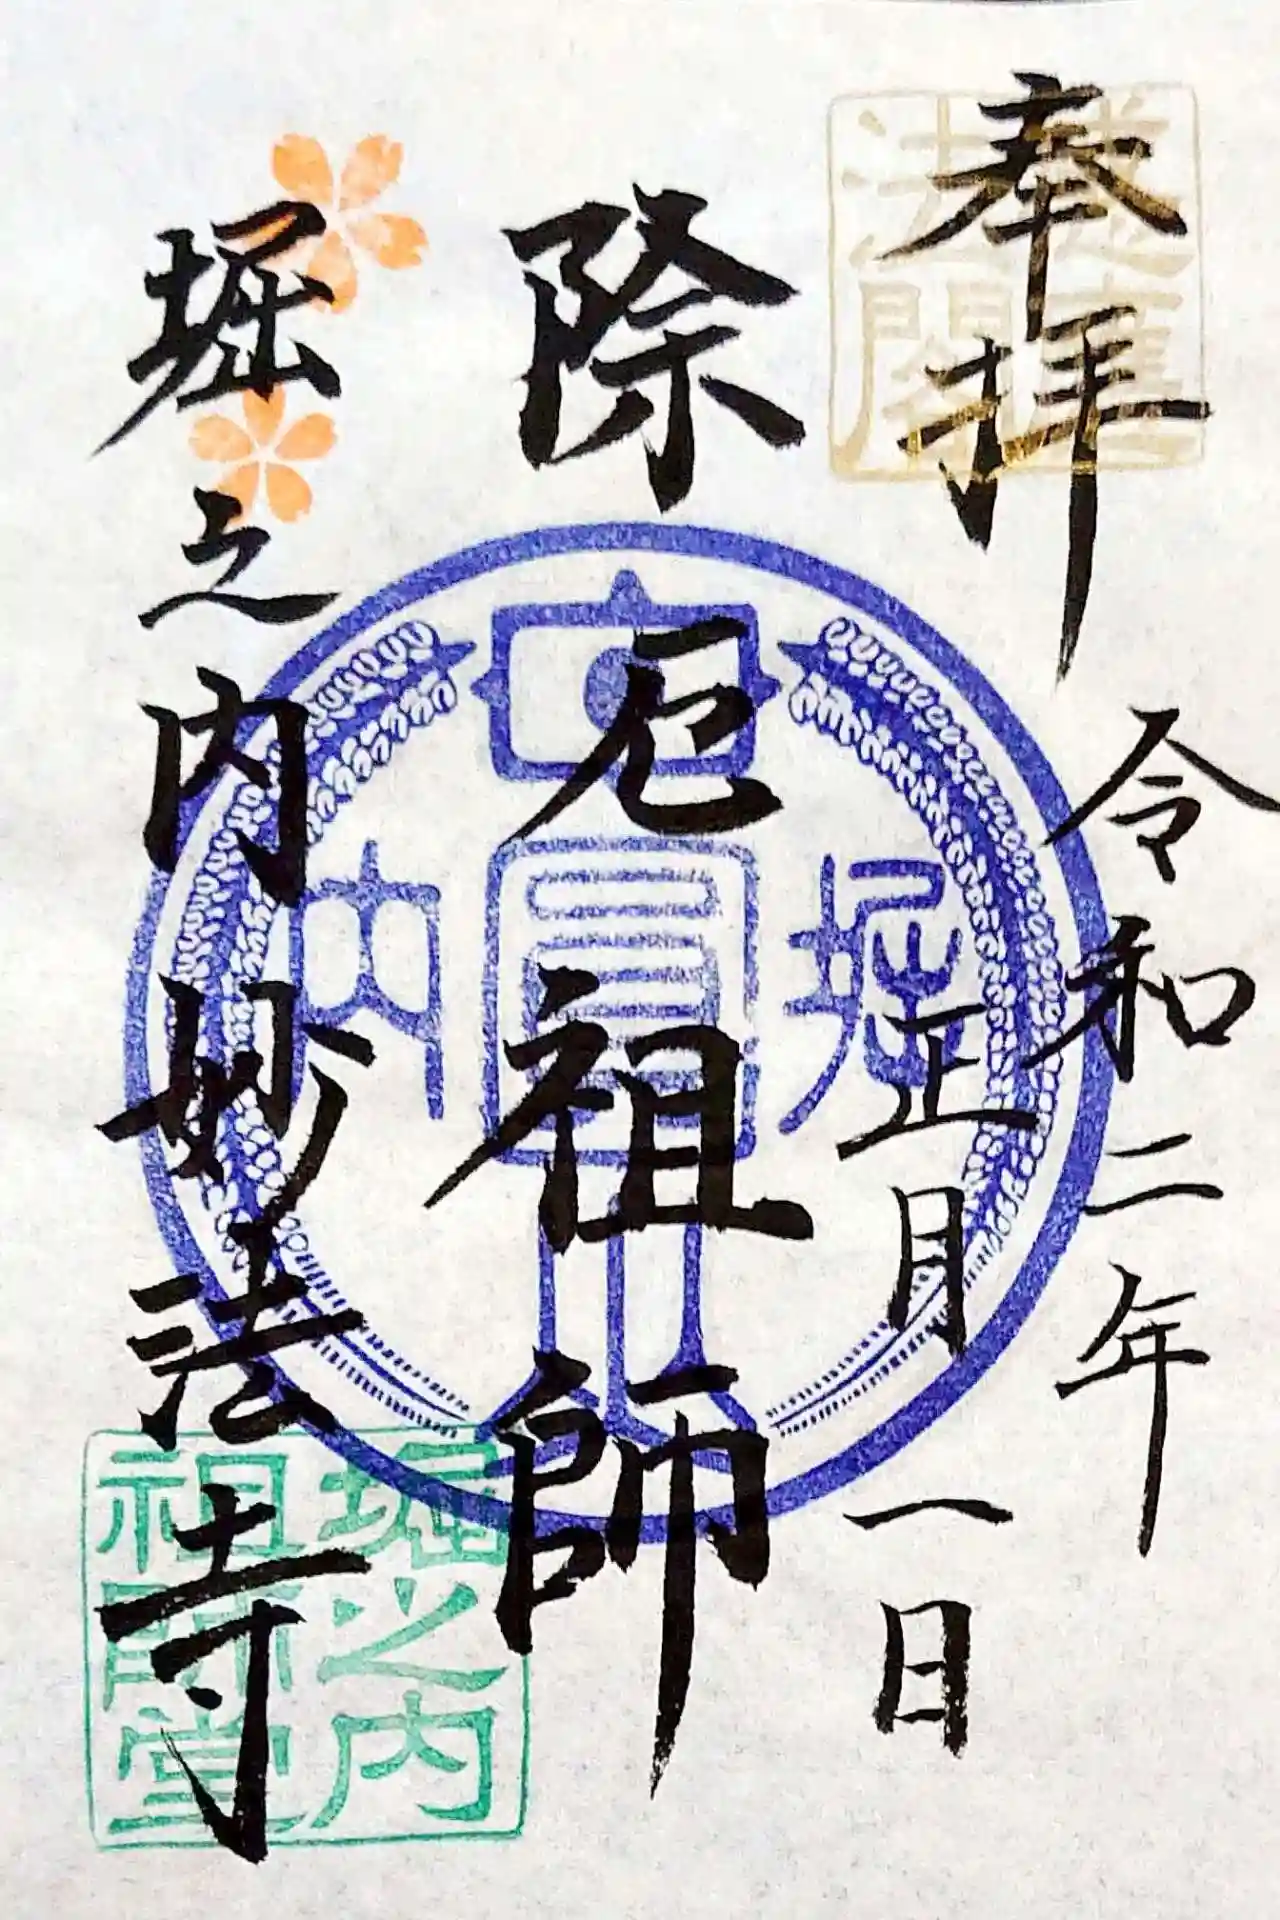 奉拝
令和二年
正月一日
除厄祖師
堀之内妙法寺
堀
内
堀之内
祖師堂